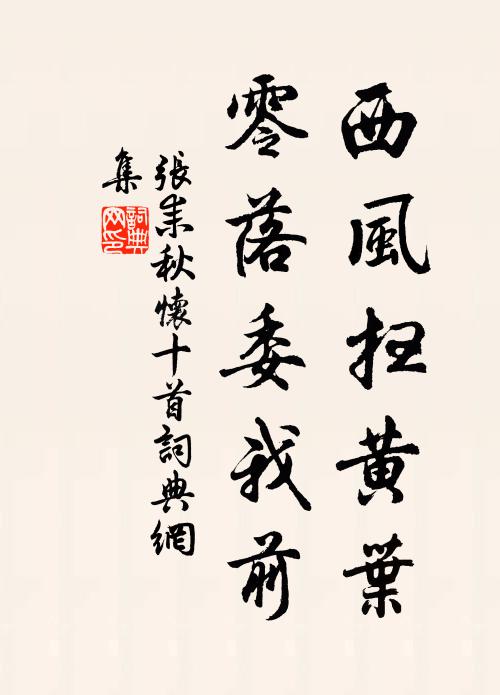 西風扫黄葉
零落委我前
張耒秋懷十首詞典網
集
詞典網印